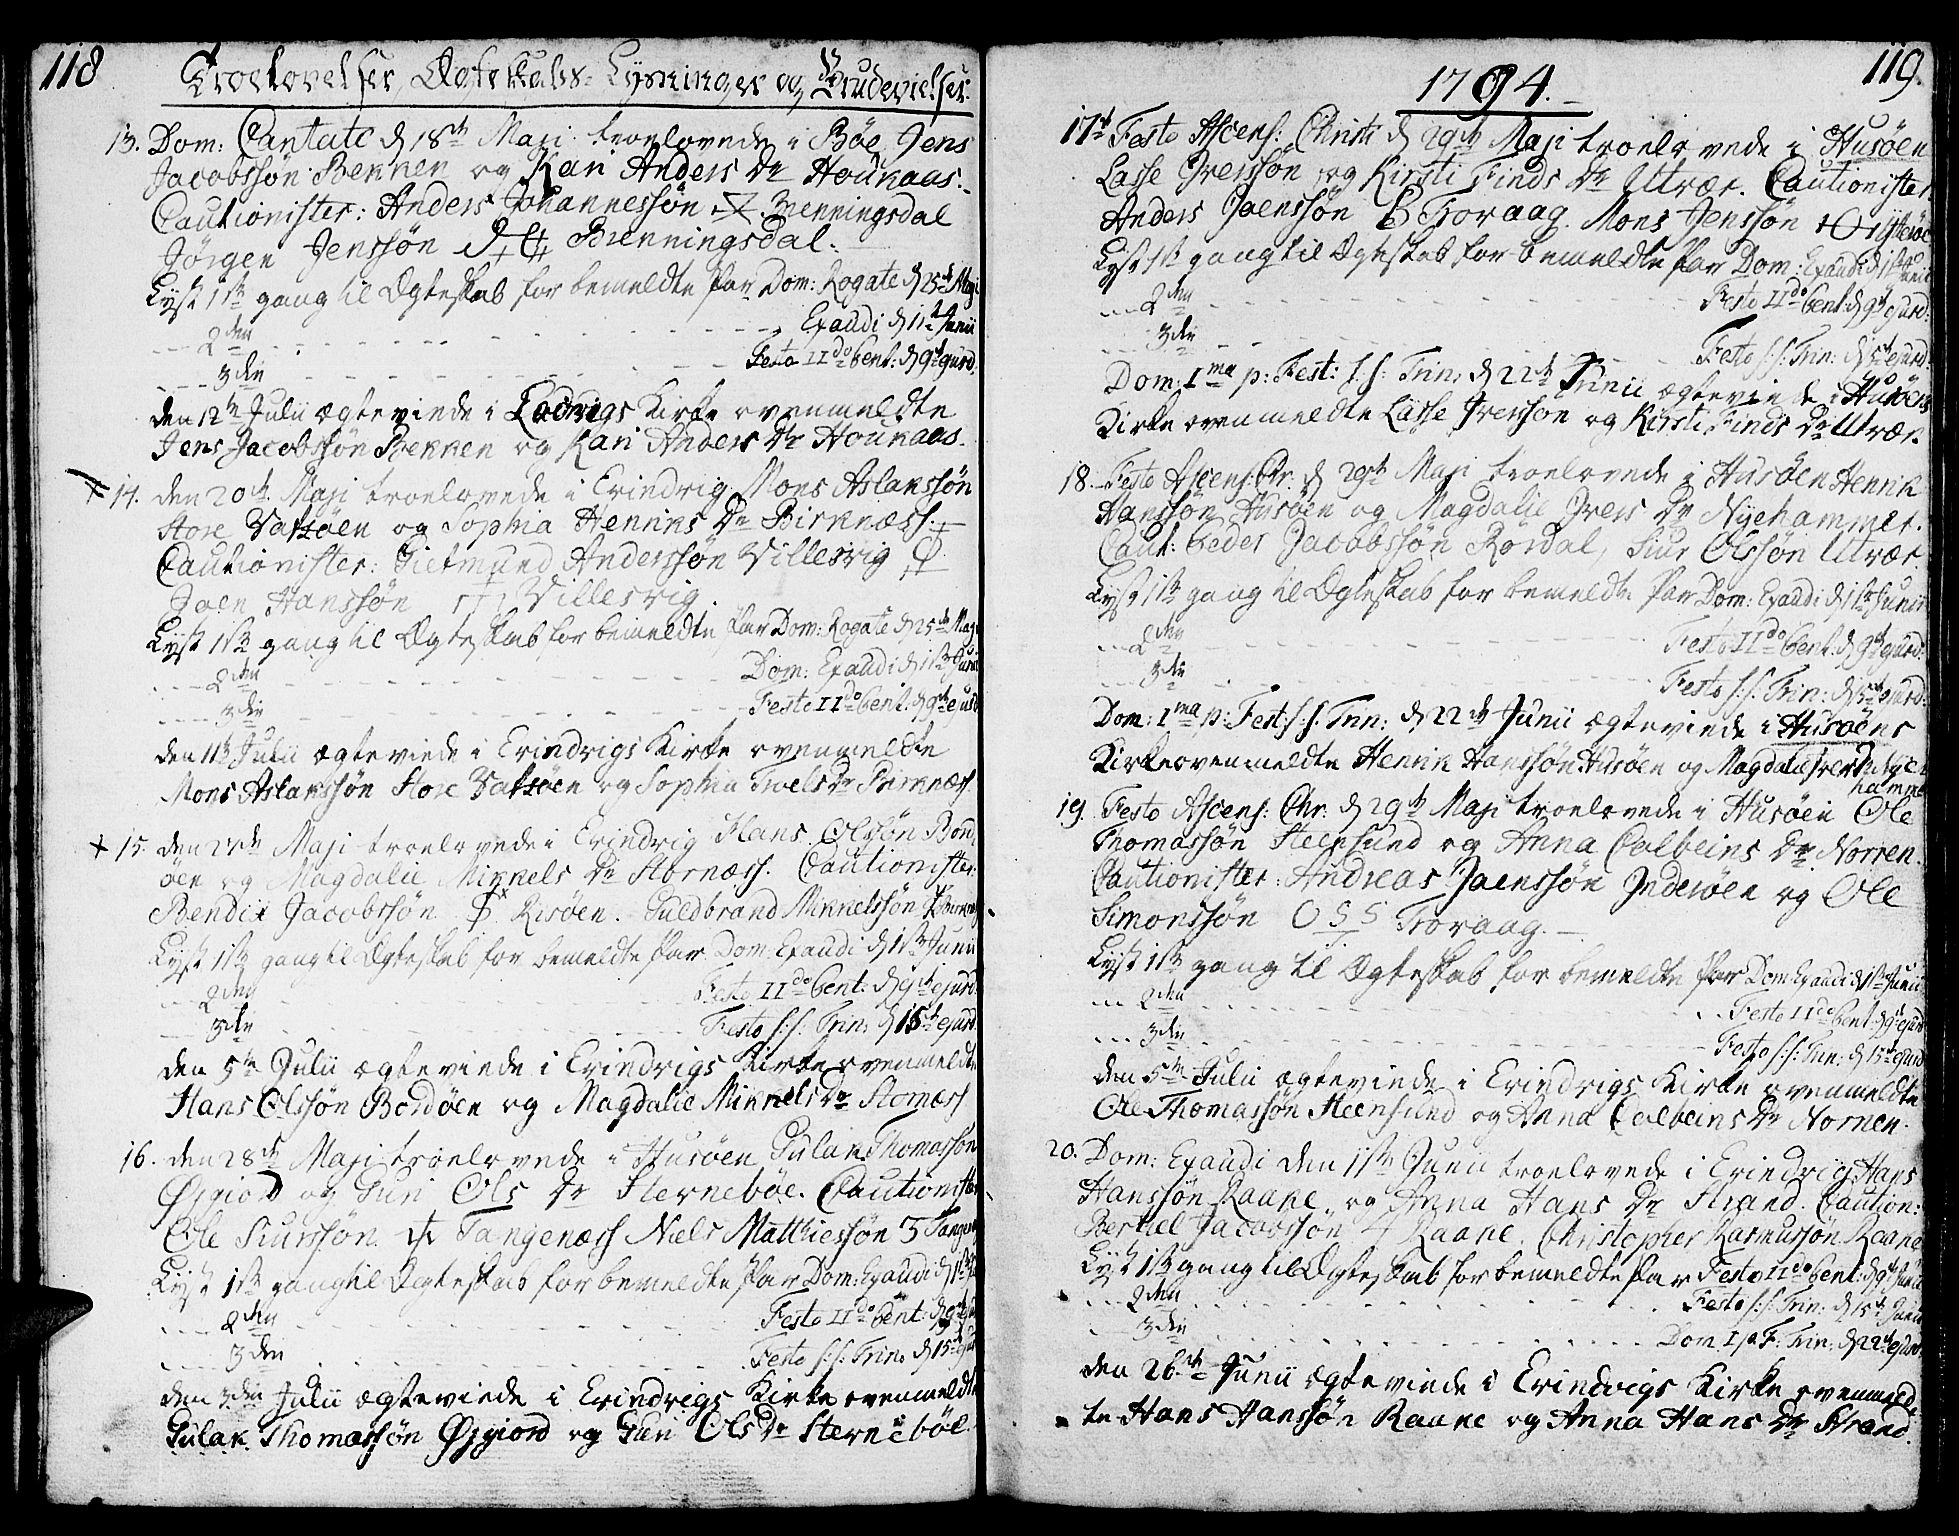 118
Troelovelser, Ægteskabs-Lysninger og Brudevielser.
13. Dom: Cantate d 18de Maji troelovede i Böe Jens
Jacobssön Bekken og Kari Anders Dr Houkaas.
Cautionister: Anders Johannessön Brenningsdal
Jörgen Jenssön Brenningsdal.
Lyst 1ste gang til Ægteskab for bemeldte Par Dom: Rogate d 25de Maji
2den - - - Exaudi d 1ste Junii
3die - - - Festo IIdo Pent: d 9de ejusd.
den 12te Julii ægteviede i Kirke ovenmeldte
Jens Jacobssön Bekken og Kari Anders Dr Houkaas.
14. den 20de Maji troelovede i Evindvig Mons Aslakssön
Store Vatsöen og Sophia Henriks Dr Birknæss.
Cautionister: Gietmund Anderssön Villesvig
Joen Hanssön Villesvig
Lyst 1ste gang til Ægteskab for bemeldte Par Dom: Rogate d 25de Maji
2den - - - Dom: Exaudi d 1ste Junii
3die - - - Festo IIdo Pent: d 9de ejusd
den 11te Julii ægteviede i Evindvigs Kirke ovenmeldte
Mons Aslakssön Store Vatsöen og Sophia Dr Birknæss
15. den Maji troelovede i Evindvig Hans Olssön Bord
öen og Magdalie Mikkels Dr Stornæss. Cautionister:
Bendix Jacobssön Risöen. Guldbrand Mikkelssön Birknæs
Lyst 1ste gang til Ægteskab for bemeldte Par Dom: Exaudi d 1ste Junii
2den - - - Festo IIdo Pent: d 9de ejusd.
3die - - - Festo s:s: Trin: d 15de ejusd.
den 5te Julii ægteviede i Evindvigs Kirke ovenmeldte
Hans Olssön Bordöen og Magdalie Mikkels Dr Stornæss
16. den 28de Maji troelovede i Husöen Gulak Thomassön
Öygiord og Guri Ols Dr Sterneböe. Cautionister
Ole Siurssön Tangenæss Niels Matthiessön
Lyst 1ste gang til Ægteskab for bemeldte Par Dom: Exaudi d 1ste
2den - - - Festo IIdo Pent: d 9de
3die - - - Festo s:s: Trin: d 15de
den 3die Julii ægteviede i Evindvigs Kirke ovenmeldte
Gulak Thomassön Öygiord og Guri Ols Dr Sterneböe.
1794.
119.
17. Festo Ascens: Christi d 29de Maji troelovede i Husöen
Lasse Iverssön og Kirsti Finds Dr Utvær. Cautionister
Anders Joenssön Toraag. Mons Jenssön Ytteröe
Lyst 1ste gang til Ægteskab for bemeldte Par Dom: Exaudi d 1ste Junii
2den - - - Festo IIdo Pent: d 9de ejusd:
3die - - - Festo s:s: Trin: d 15de ejusd.
Dom: Ima p: Fest: s:s: Trin: d 22de Junii ægteviede i Husöens
Kirke ovenmeldte Lasse Iverssön og Kirsti Finds Dr Utvær.
18. Festo Ascens: Chr: d 29de Maji troelovede i Husöen Henrik
Hanssön Husöen og Magdalie Ivers Dr Nyehammer.
Caut: Peder Jacobssön Rördal, Siur Olssön Utvær.
Lyst 1ste gang til Ægteskab for bemeldte Par Dom: Exaudi d 1ste Junii
2den - - - Festo IIdo Pent: d 9de ejusd:
3die - - - Festo s:s: Trin: d 15de ejusd:
Dom: Ima p: Fest: s:s: Trin: d 22de Junii ægteviede i Husöens
Kirke ovenmeldte Henrik Hanssön Husöen og Magdalie Ivers Dr Nye
hammer
19. Festo Ascens: Chr: d 29de Maji troelovede i Husöen Ole
Thomassön Steensund og Anna Colbeins Dr Norren.
Cautionister: Andreas Joenssön Inderöen og Ole
Simonssön OSS Toraag.
Lyst 1ste gang til Ægteskab for bemeldte Par Dom: Exaudi d 1ste Junii
2den - - - Festo IIdo Pent: d 9de ejusd
3die - - - Festo s:s: Trin: d 15de ejusd
den 5te Julii ægteviede i Evindvigs Kirke ovenmeldte
Ole Thomassön Steensund og Anna Colbeins Dr Norren.
20. Dom: Exaudi den 1ste Junii troelovede i Evindvig Hans
Hanssön Raake og Anna Hans Dr Strand. Caution:
Berthel Jacobssön Raake. Christopher Rasmussön Raake
Lyst 1ste gang til Ægteskab for bemeldte Par Festo IIdo Pent: d 9de Junii
2den - - - Festo s:s: Trin: d 15de Junii
3die - - - Dom I p: F: Trin: d 22de ejusd.
den 26de Junii ægteviede i Evindvigs Kirke ovenmeld-
te Hans Hanssön Raake og Anna Hans Dr Strand.